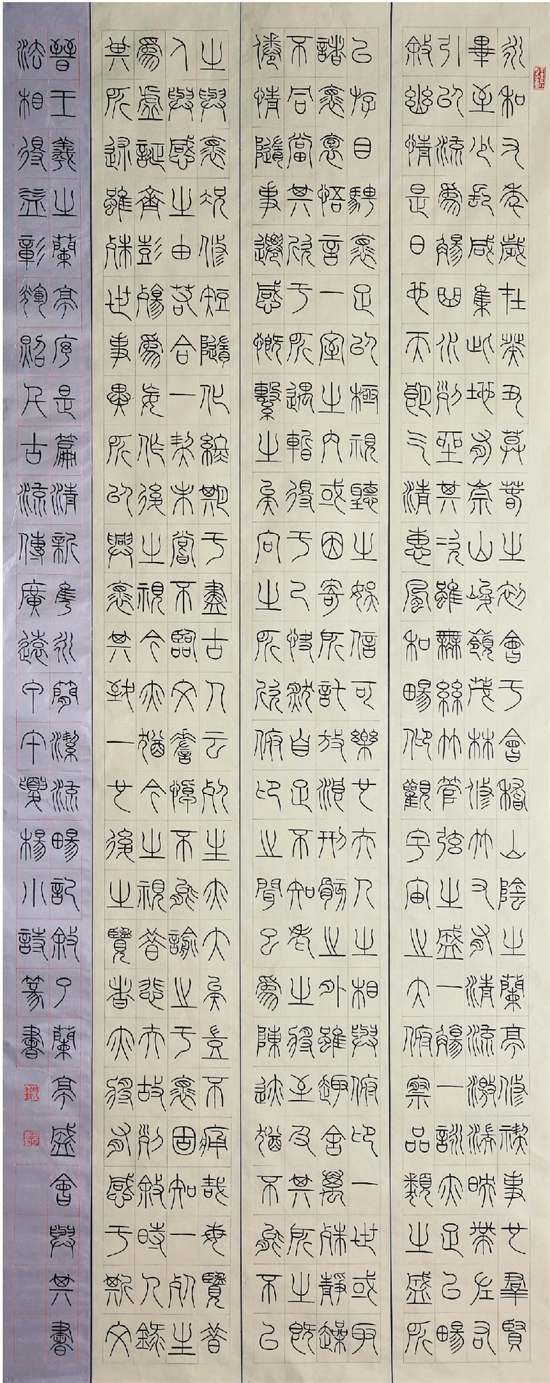 永和九年歲在癸丑暮春之初會于會稽山陰之蘭亭修禊事也群賢
畢至少長咸集此地有崇山峻嶺茂林修竹又有清流激湍映帶左右
引以流爲觴曲水列坐其次雖無絲竹管弦之盛一觴一詠亦足以暢
敘幽情是日也天朗氣清惠風和暢仰觀宇宙之大俯察品類之盛所
以遊目騁懷足以極視聽之娛信可樂也夫人之相與俯仰一世或取
諸懷抱悟言一室之內或因寄所託放浪形骸之外雖趣舍萬殊靜躁
不同當其欣于所遇暫得于己快然自足不知老之將至及其所之既
倦情隨事遷感慨繫之矣向之所欣俯仰之間已爲陳跡猶不能不以
之興懷況修短隨化終期于盡古人云死生亦大矣豈不痛哉每覽昔
人興感之由若合一契未嘗不臨文嗟悼不能喻之于懷固知一死生
爲虛誕齊彭殤爲妄作後之視今亦猶今之視昔悲夫故列敘時人錄
其所述雖殊世事異所以興懷其致一也後之覽者亦將有感于斯文
晉王羲之蘭亭序是篇清新雋永簡潔流暢記敘了蘭亭盛會與其書
法相得益彰輝照千古流傳廣遠甲午夏楊小詩篆書